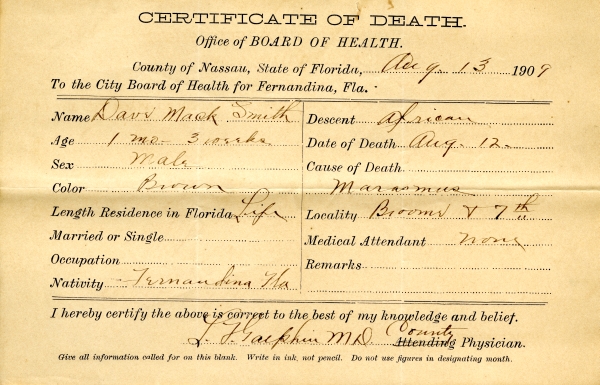 CERTIFICATE OF DEATH.
Office of BOARD OF HEALTH.
County of Nassau, State of Florida, Aug. 13 1909
To the City Board of Health for Fernandina, Fla.
Name Davi Mack Smith
Age 1 mo 3 weeks
Sex Male
Color Brown
Length Residence in Florida Life
Married or Single
Occupation
Nativity Fernandina Fla
Descent African
Date of Death Aug. 12
Cause of Death
Marasmus
Locality Broome & 7th
Medical Attendant none
Remarks
I hereby certify the above is correct to the best of my knowledge and belief.
M.D. County Attending Physician.
Give all information called for on this blank. Write in ink, not pencil. Do not use figures in designating month.